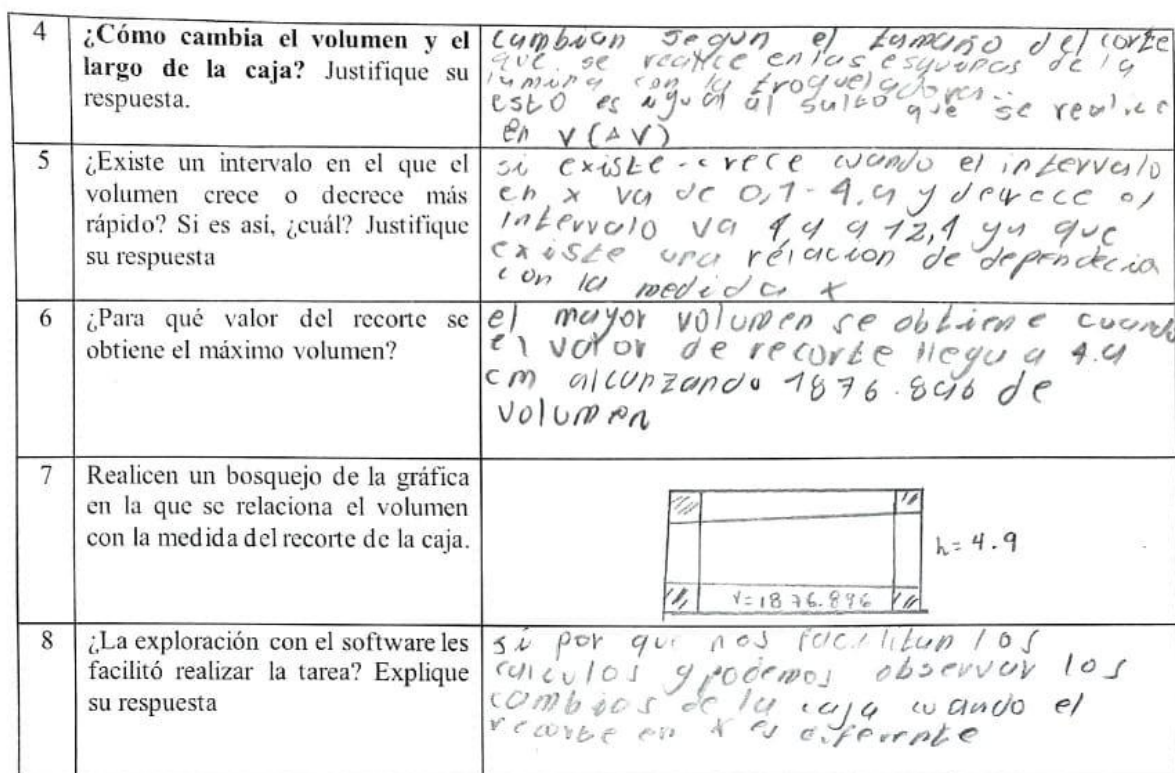 4
¿Cómo cambia el volumen y el
largo de la caja? Justifique su
respuesta.
cambian segun el tamaño del corte
que se realice en las esquinas de la
lamina con la troqueladora..
esto es igual al salto que se realice
en V(ΔV)
5
¿Existe un intervalo en el que el
volumen crece o decrece más
rápido? Si es así, ¿cuál? Justifique
su respuesta
si existe - crece cuando el intervalo
en x va de 0,1 - 4.9 y decrece el
intervalo va 4,9 a 12,1 ya que
existe una relacion de dependecia
con la medida x
6
¿Para qué valor del recorte se
obtiene el máximo volumen?
el mayor volumen se obtiene cuando
el valor de recorte llega a 4.9
cm alcanzando 1876.896 de
volumen
7
Realicen un bosquejo de la gráfica
en la que se relaciona el volumen
con la medida del recorte de la caja.
h= 4.9
V=1876.896
8
¿La exploración con el software les
facilitó realizar la tarea? Explique
su respuesta
si por que nos facilitan los
calculos y podemos observar los
cambios de la caja cuando el
recorte en x es diferente